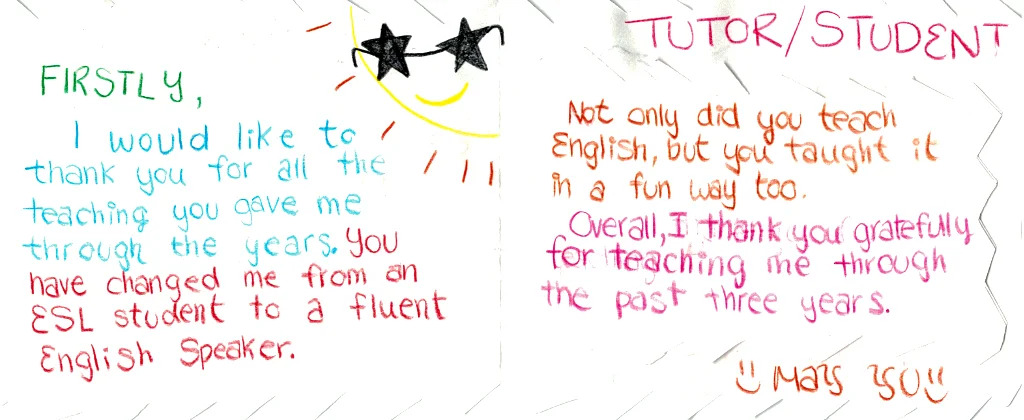 FIRSTLY,
I would like to
thank you for all the
teaching you gave me
through the years. You
have changed me from an
ESL student to a fluent
English Speaker.
TUTOR/STUDENT
Not only did you teach
English, but you taught it
in a fun way too.
Overall, I thank you gratefully
for teaching me through
the past three years.